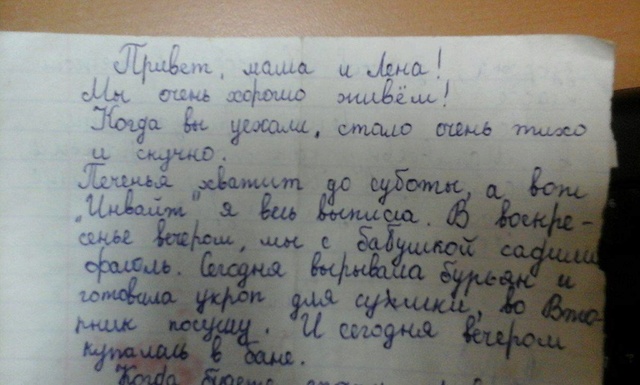 Привет, мама и Лена!
Мы очень хорошо живём!
Когда вы уехали, стало очень тихо
и скучно.
Печенья хватит до суботы, а вот
"Инвайт" я весь выписа. В воскре-
сенье вечером, мы с бабушкой садили
фасоль. Сегодня вырывала бурьян и
готовила укроп для сушки, во Вто-
рник посушу. И сегодня вечером
купалась в бане.
Когда будете